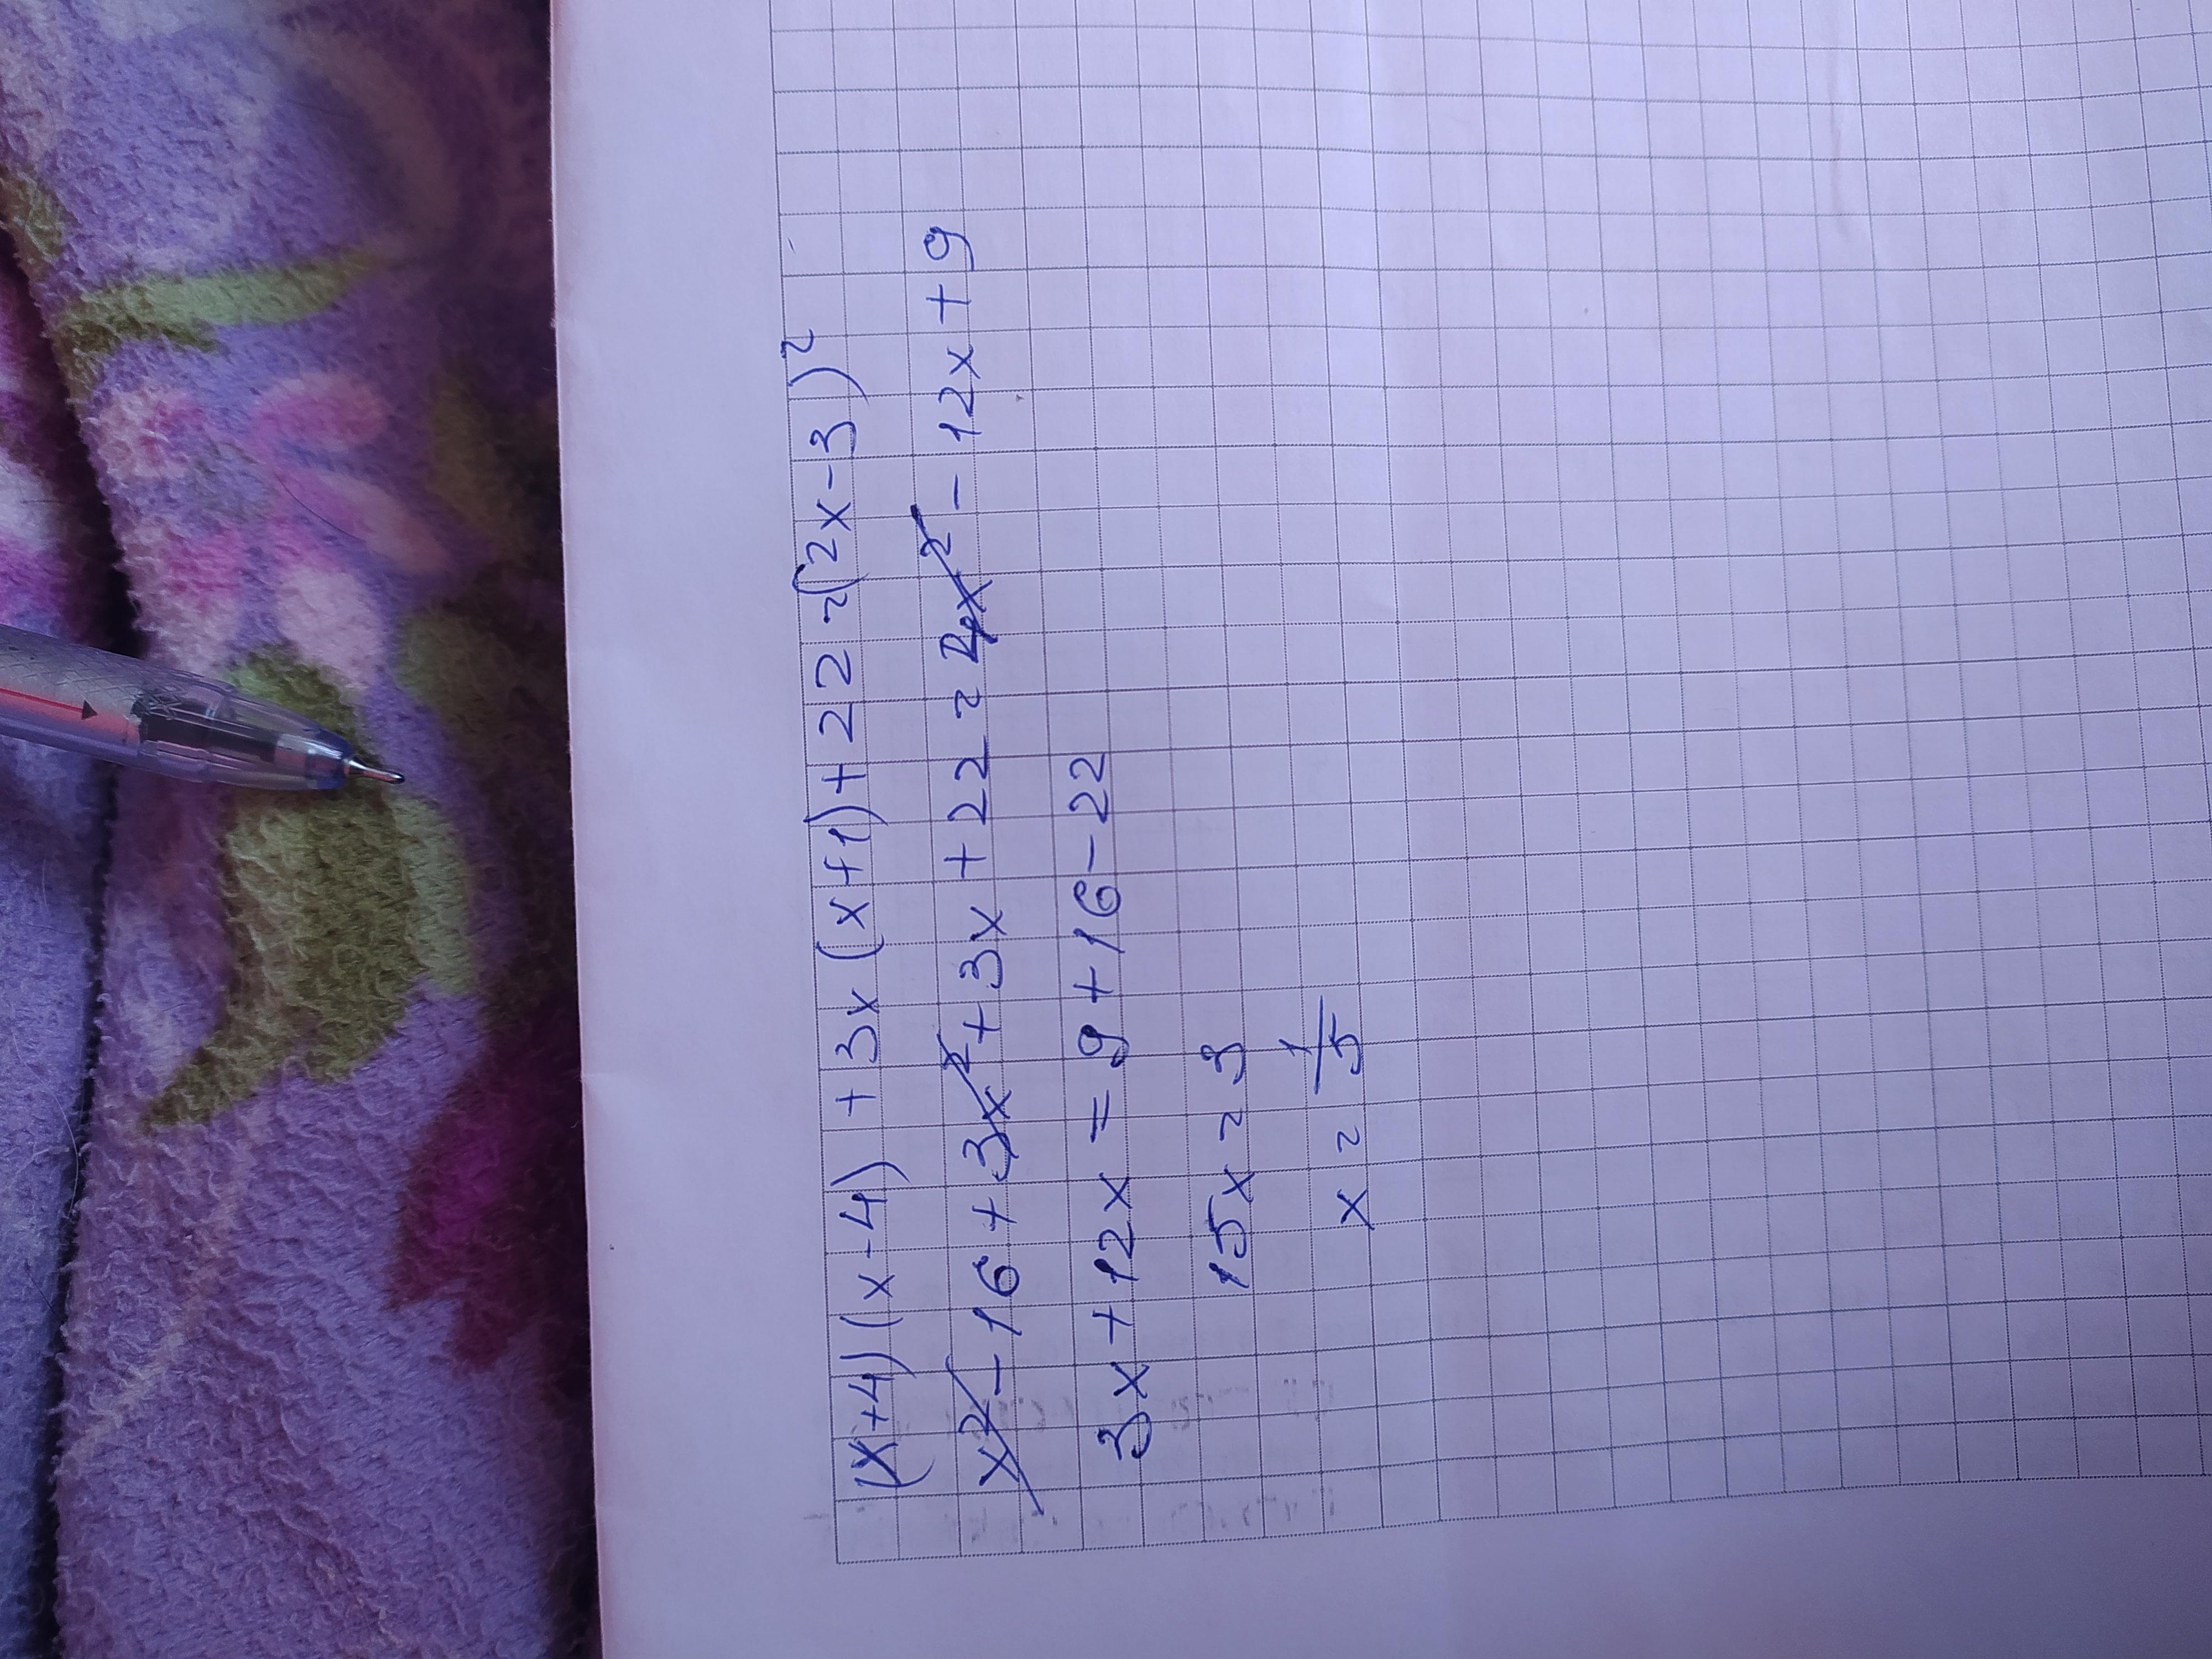 (x+4)(x-4) + 3x(x+1) + 22 = (2x-3)²
x² - 16 + 3x² + 3x + 22 = 4x² - 12x + 9
3x + 12x = 9 + 16 - 22
15x = 3
x = 1/5